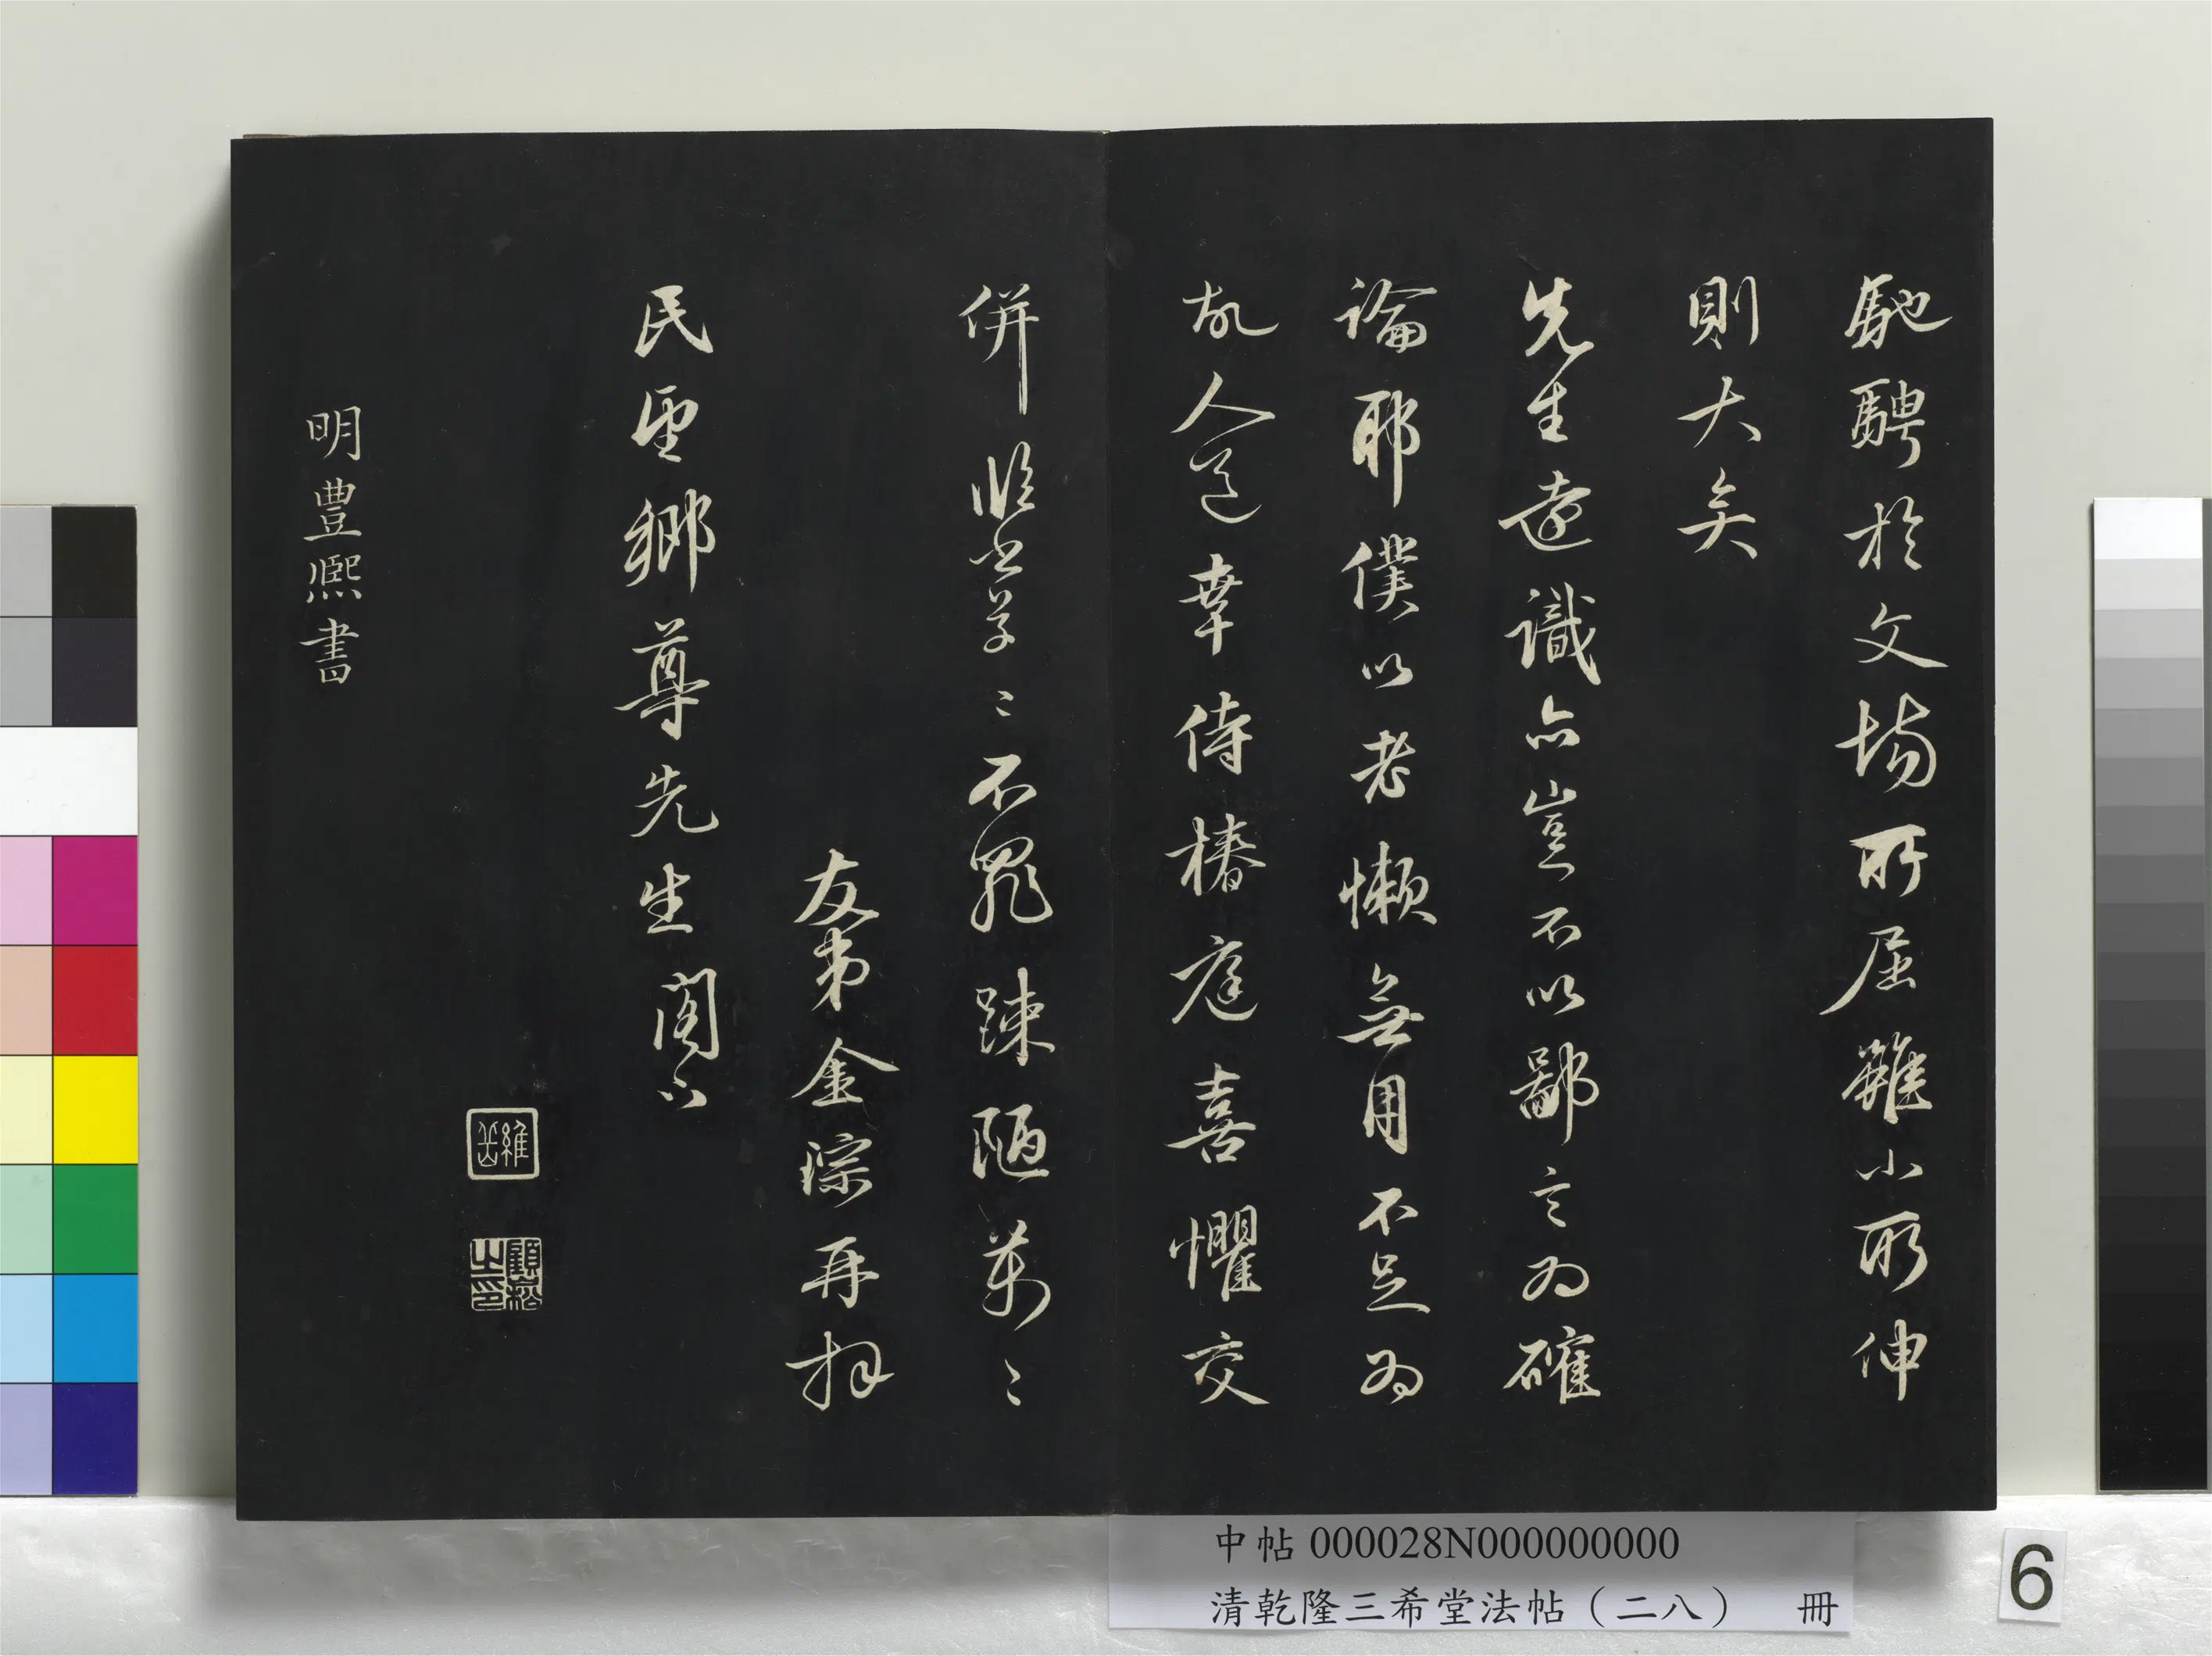 馳騁於文場所屈雖小所伸
則大矣
先生遠識亦豈不以鄙言為確
論耶僕以老懶無用不足為
故人道幸侍椿庭喜懼交
併臨書草〻不罪疎陋萬〻
友弟金琮再拜
民望鄉尊先生閣下
維岳
顧崧之印
明豊熙書
中帖 000028N000000000
清乾隆三希堂法帖（二八） 冊
6